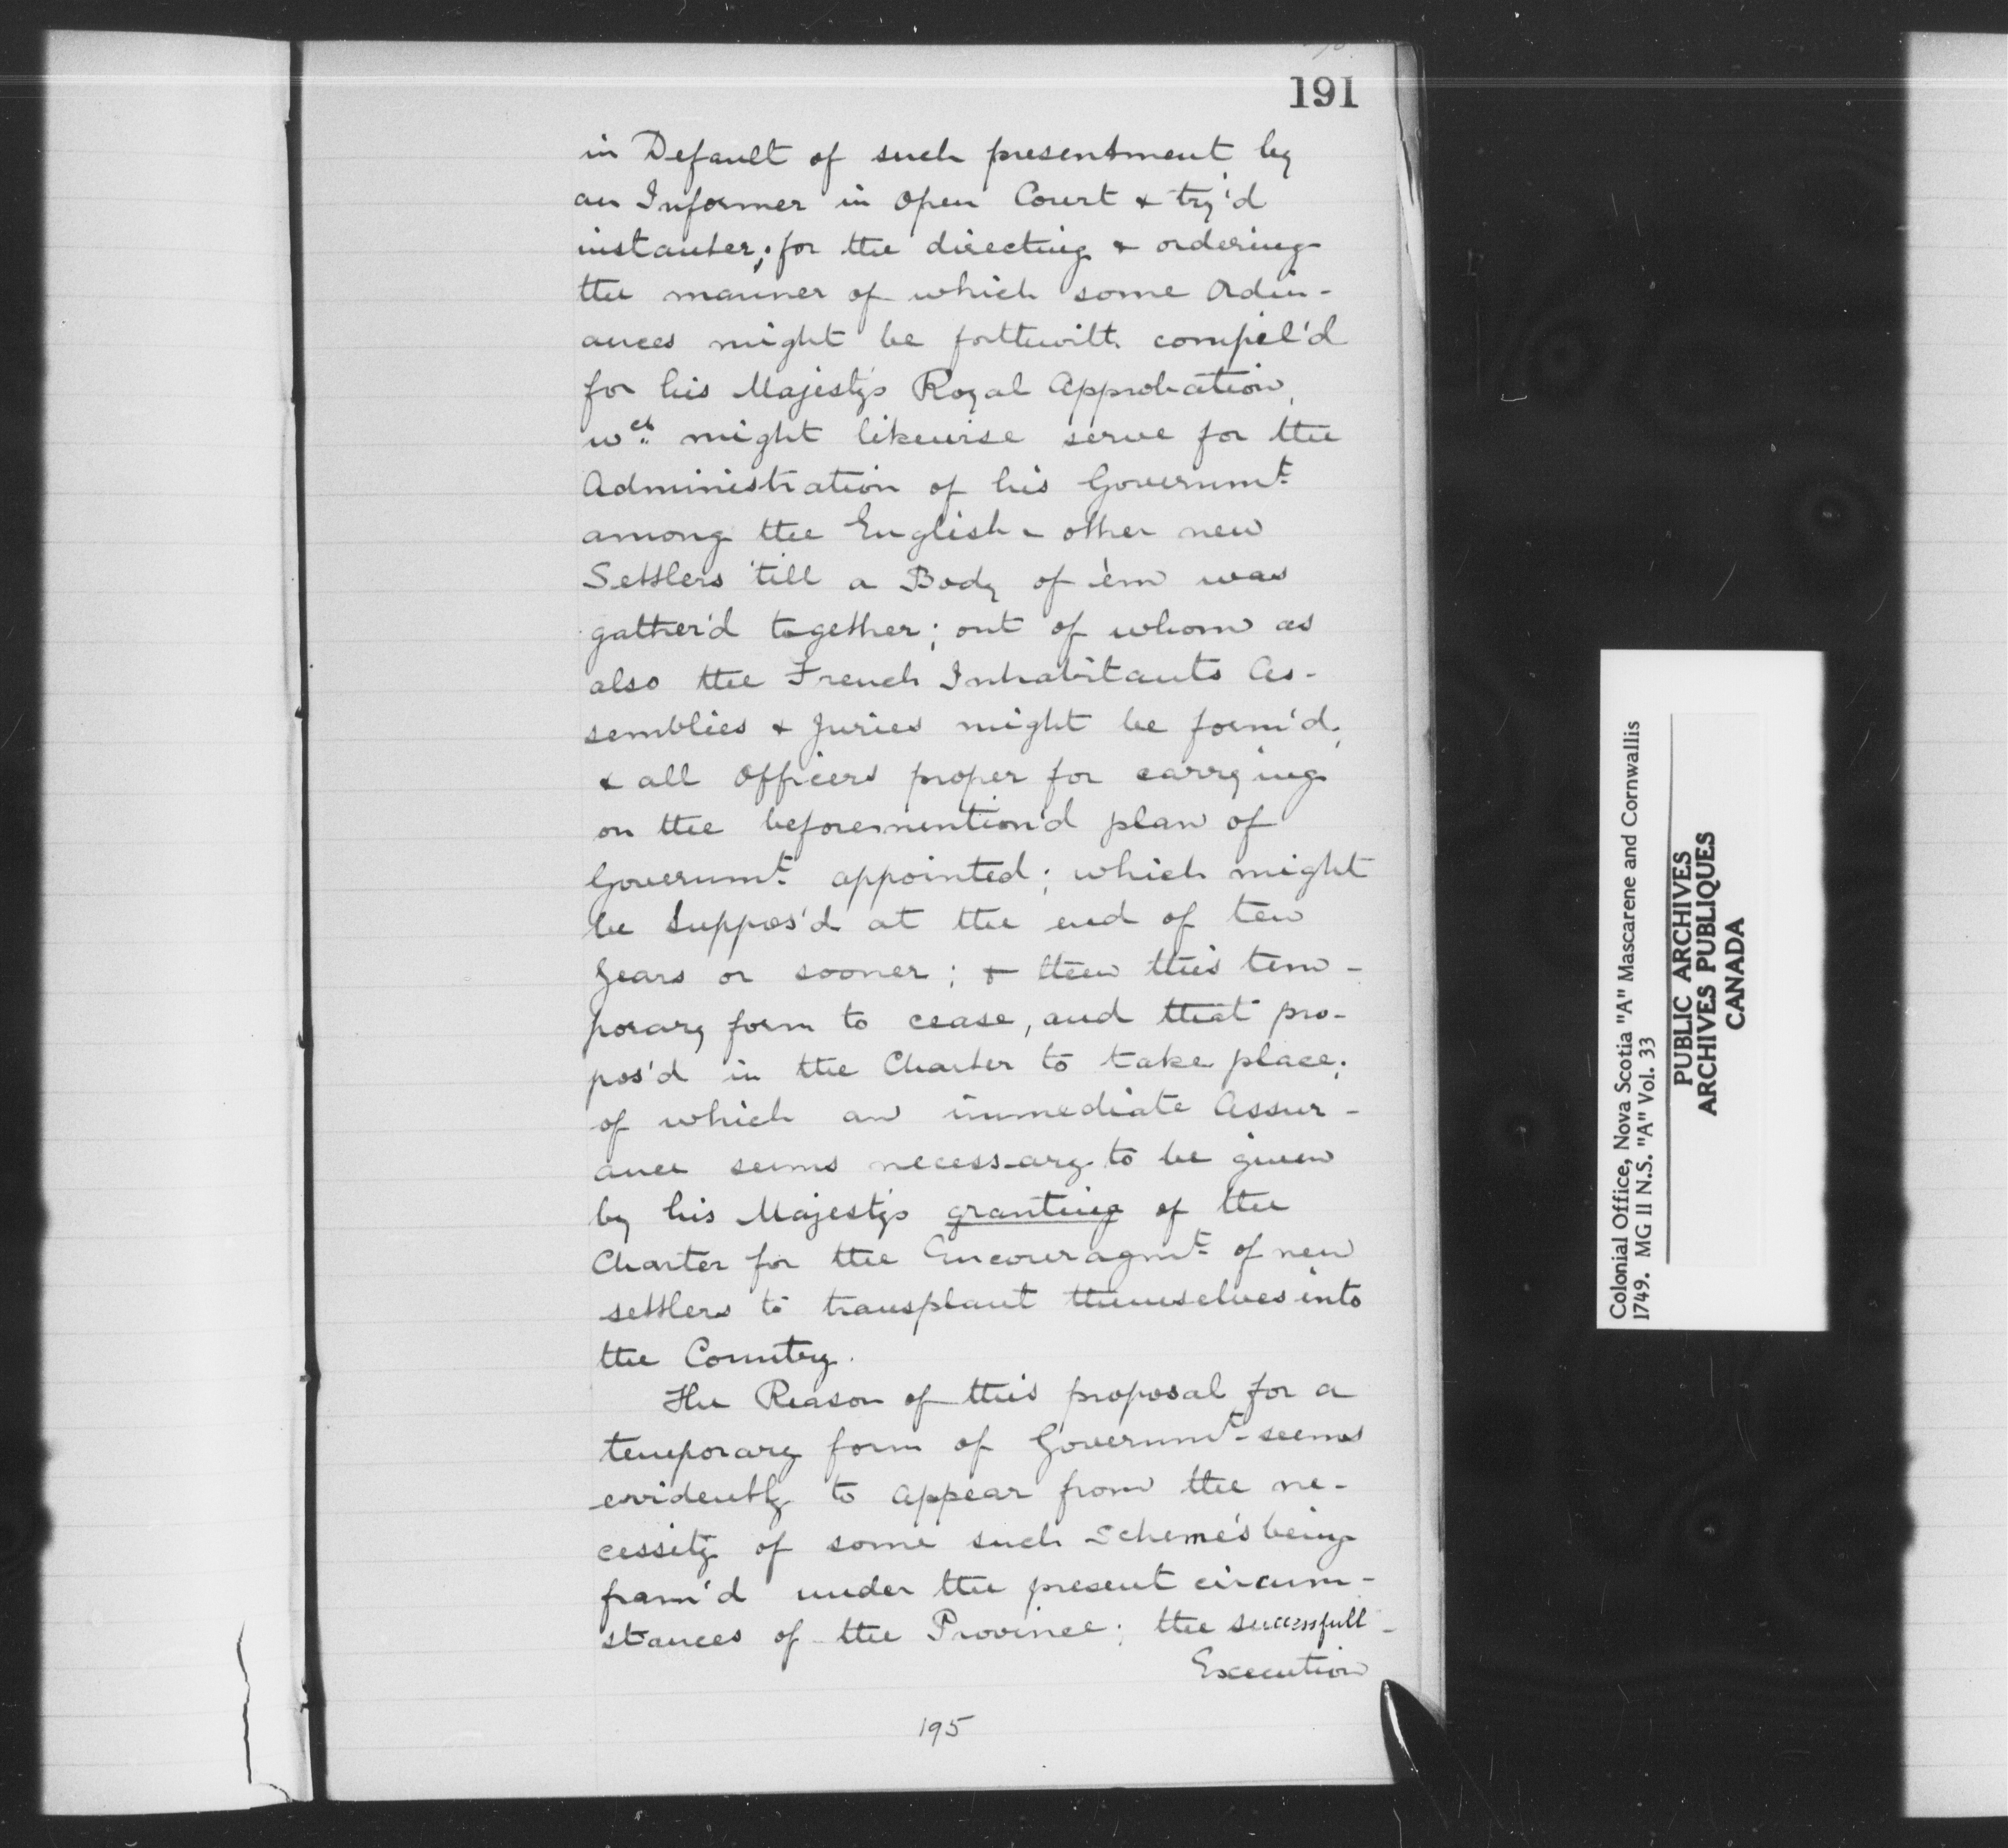 191
in Default of such presentment by
an Informer in Open Court & try'd
instanter; for the directing & ordering
the manner of which some Ordin-
ances might be forthwith compil'd
for his Majesty's Royal Approbation,
wch might likewise serve for the
Administration of his Governmt
among the English & other new
Settlers 'till a Body of 'em was
gather'd together; out of whom as
also the French Inhabitants As-
semblies & Juries might be form'd,
& all Officers proper for carrying
on the beforemention'd plan of
Governmt appointed; which might
be Suppos'd at the end of ten
years or sooner; & then this tem-
porary form to cease, and that pro-
pos'd in the Charter to take place;
of which an immediate Assur-
ance seems necessary to be given
by his Majesty's granting of the
Charter for the Encouragmt of new
settlers to transplant themselves into
the Country.
The Reason of this proposal for a
temporary form of Governmt seems
evidently to appear from the ne-
cessity of some such Scheme's being
fram'd under the present circum-
stances of the Province; the successfull
Execution
195
Colonial Office, Nova Scotia "A" Mascarene and Cornwallis
1749. MG II N.S. "A" Vol. 33
PUBLIC ARCHIVES
ARCHIVES PUBLIQUES
CANADA